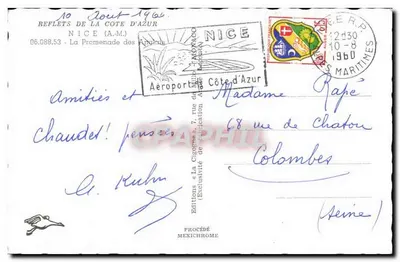 10 Aout 1960
REFLETS DE LA COTE D'AZUR
NICE (A.-M.)
06.088.53 - La Promenade des Anglais
NICE
Aéroport Côte d'Azur
R.P.
12H30
10-8
1960
S MARITIMES
Amitiés et
chaudes! pensées
A. Kuhn
Madame Rapé
68 rue de Chatou
Colombes
(Seine)
Editions "La Cigogne"
PROCÉDÉ
MEXICHROME